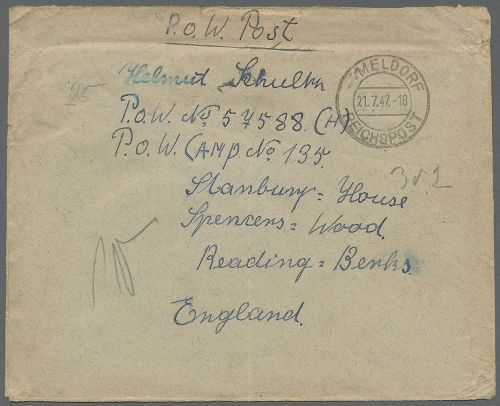 P.o.W. Post
Helmut Schulth
P.o.W. No 57588. (H)
P.o.W. CAMP No 135.
Stanbury = House
Spencers = Wood.
Reading = Berks.
England.
MELDORF
21.7.47.-18
REICHSPOST
20